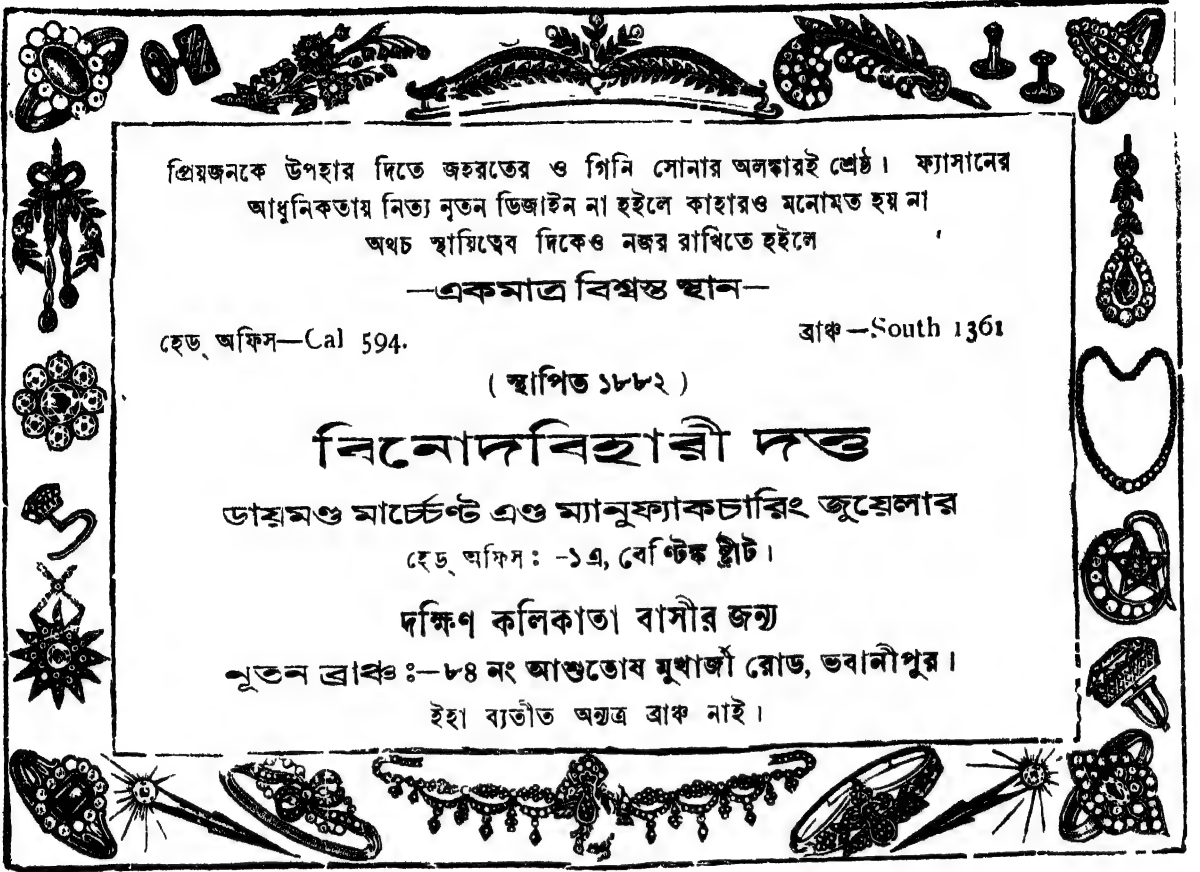 প্রিয়জনকে উপহার দিতে জহরতের ও গিনি সোনার অলঙ্কারই শ্রেষ্ঠ। ফ্যাসানের
আধুনিকতায় নিত্য নূতন ডিজাইন না হইলে কাহারও মনোমত হয় না
অথচ স্থায়িত্বেব দিকেও নজর রাখিতে হইলে
—একমাত্র বিশ্বস্ত স্থান—
হেড্ অফিস—Cal 594.
ব্রাঞ্চ—South 1361
( স্থাপিত ১৮৮২ )
বিনোদবিহারী দত্ত
ডায়মণ্ড মার্চ্চেণ্ট এণ্ড ম্যানুফ্যাকচারিং জুয়েলার
হেড্ অফিস: -১এ, বেণ্টিঙ্ক ষ্ট্রীট।
দক্ষিণ কলিকাতা বাসীর জন্য
নূতন ব্রাঞ্চ:—৮৪ নং আশুতোষ মুখার্জী রোড, ভবানীপুর।
ইহা ব্যতীত অন্যত্র ব্রাঞ্চ নাই।